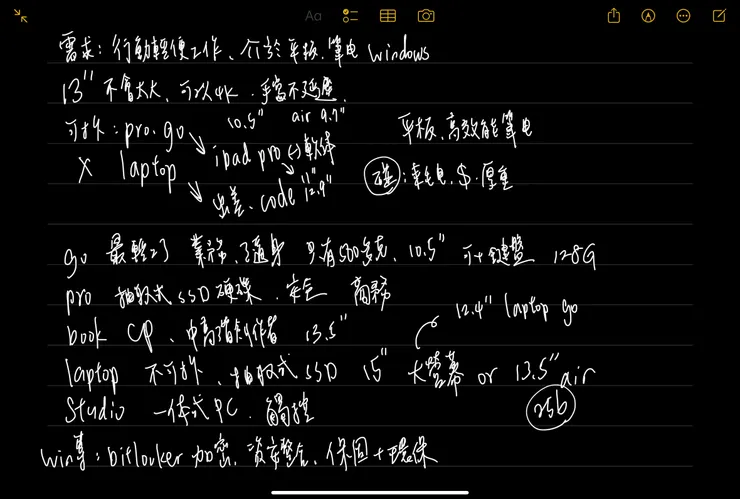 需求：行動輕便工作、介於平板、筆電 windows
13" 不會太大、可以4K、手寫不延遲
10.5" air 9.7"
可拆：pro. go 平板、高效能筆電
ipad pro ↔ 軟体
X laptop 11" 12.9"
出差、code
：耗電、$、厚重
go 最輕巧 業務、隨身 只有500多克、10.5" 可+鍵盤 128G
pro 抽取式 SSD 硬碟、安全 商務
12.4" laptop go
book CP、中高階創作者 13.5"
laptop 不可拆、抽取式 SSD 15" 大螢幕 or 13.5" air
256
Studio 一体式PC、觸控
win專：bitlocker 加密、資安整合、保固+環保